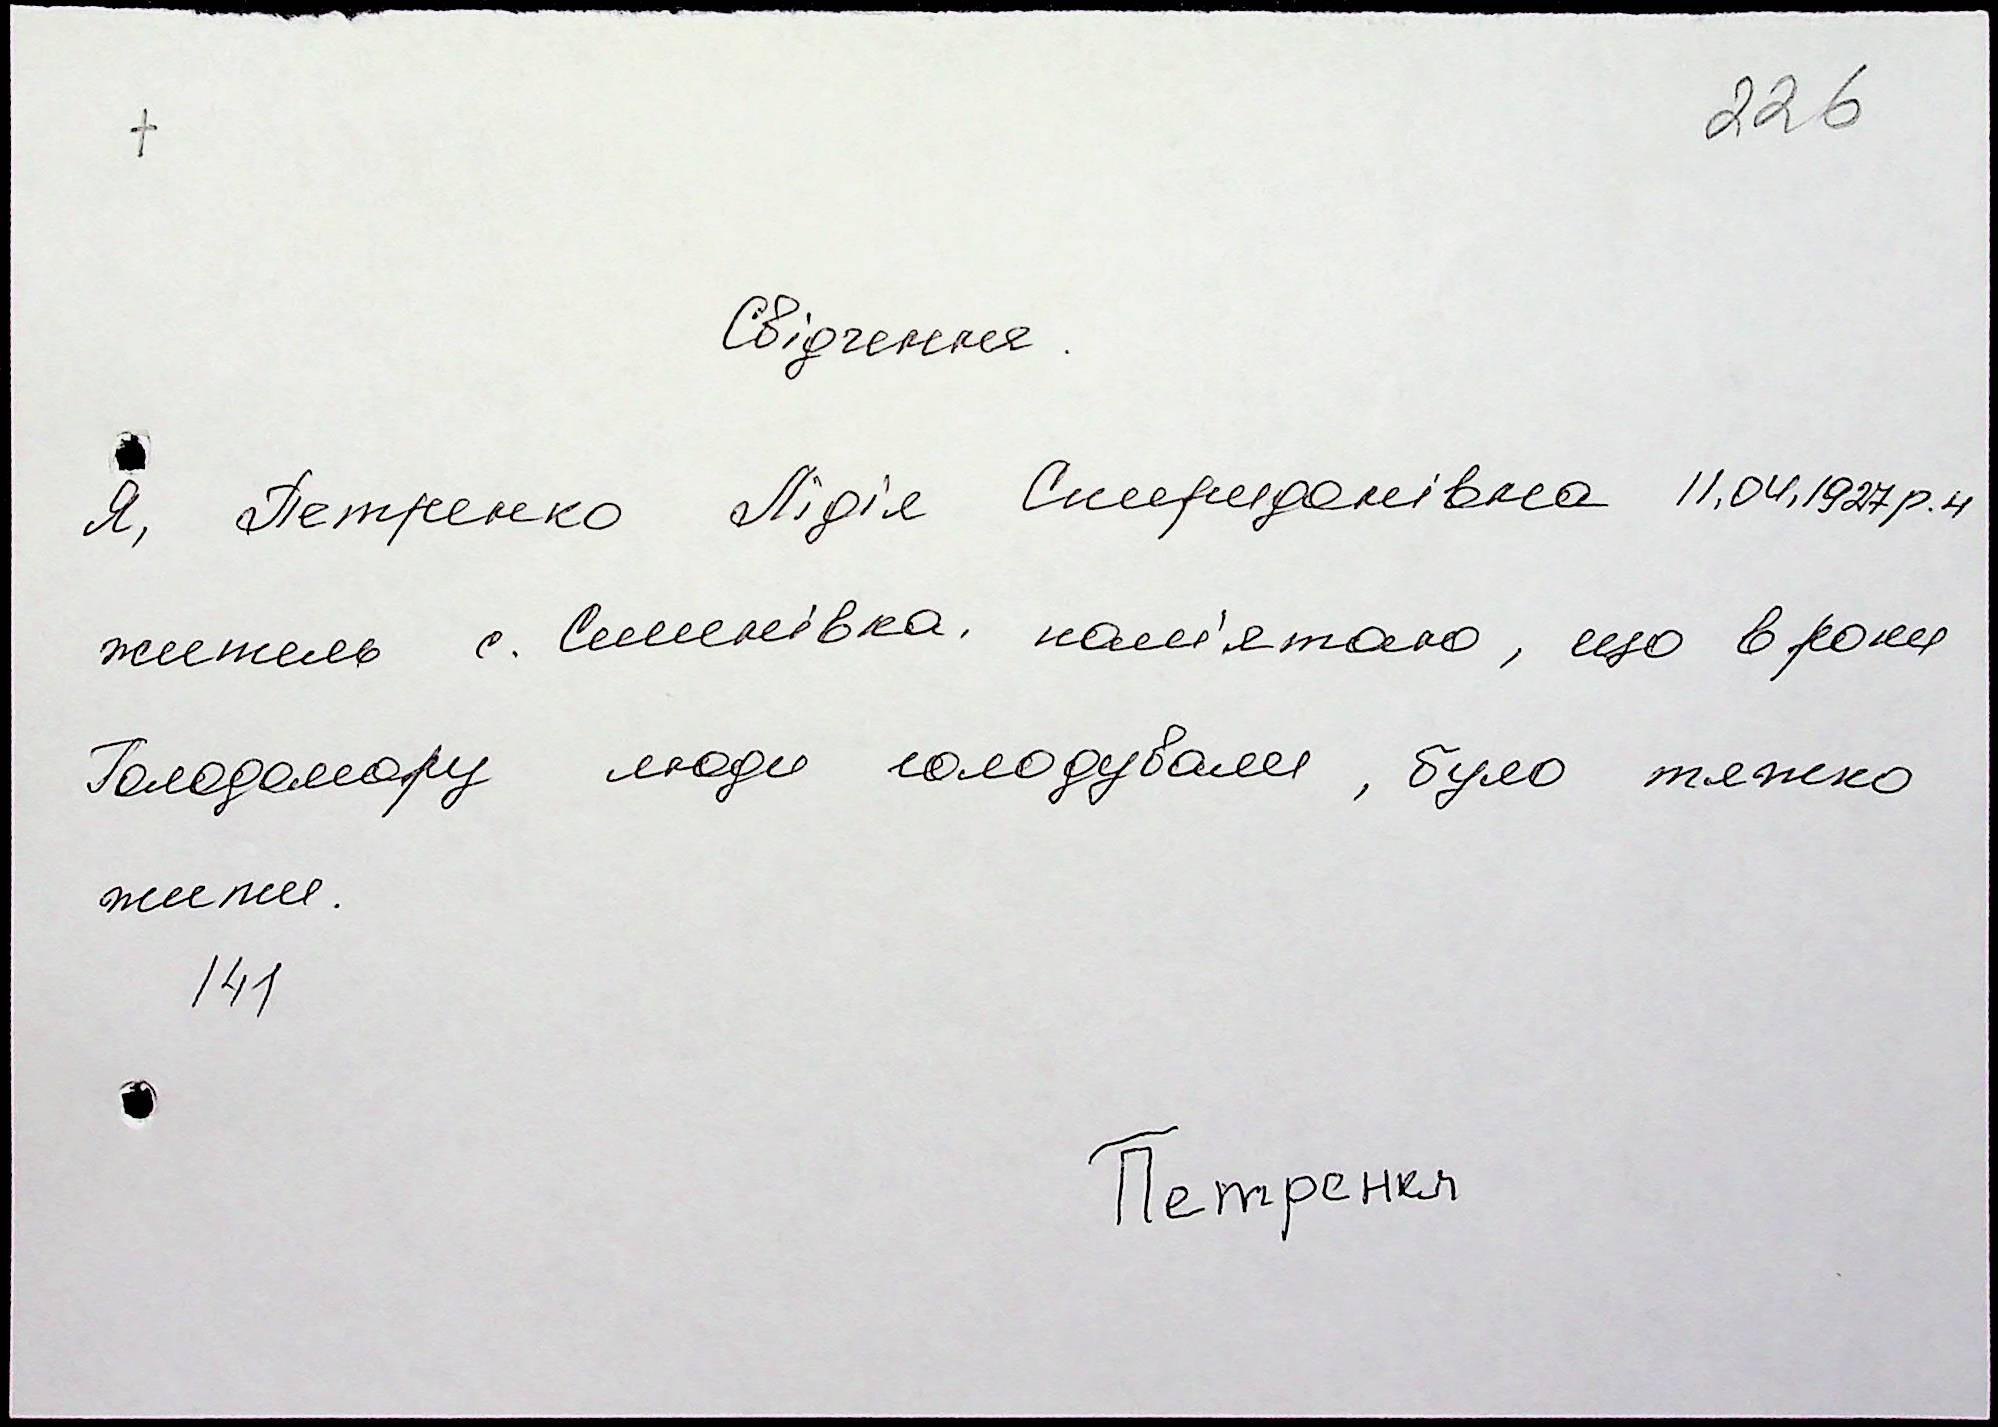 +
226
Свідчення.
Я, Петренко Лідія Спиридонівна 11.04.1927 р.н
житель с. Сминівка. пам'ятаю, що в роки
Голодомору люди голодували, було тяжко
жити.
141
Петренкя